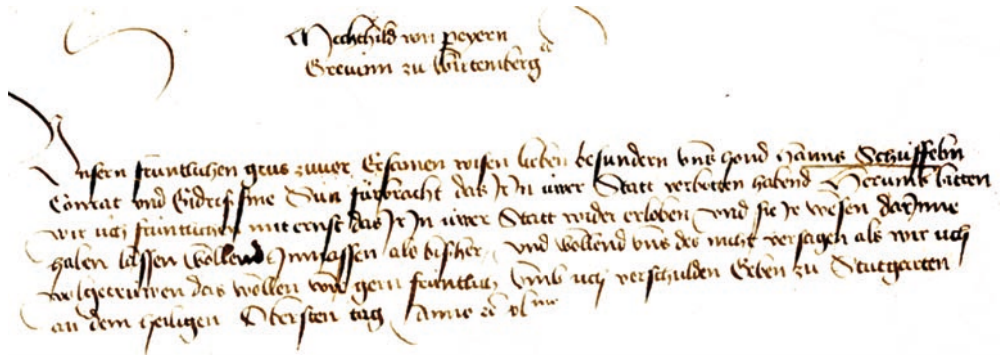 Mechthild von Peyern
Grevinn zu Wirtemberg etc
Unsern fruntlichen grus zuvor Ersamen wisen lieben besundern uns hond Hanns Schuffelin
Conrat und Fridrich sine Sun furbracht das Ir In uwer Statt verbotten habend Herumb bitten
wir uch fruntlichen mit ernst das Ir In uwer Statt wider erloben und sie Ir wesen darInne
haben lassen wollend Inmassen als bisher, und wollend uns des nicht versagen als wir uch
wolgetruwen das wollen wir gern fruntlich umb uch verschulden Geben zu Stutgarten
an dem heiligen Obersten tag Anno etc